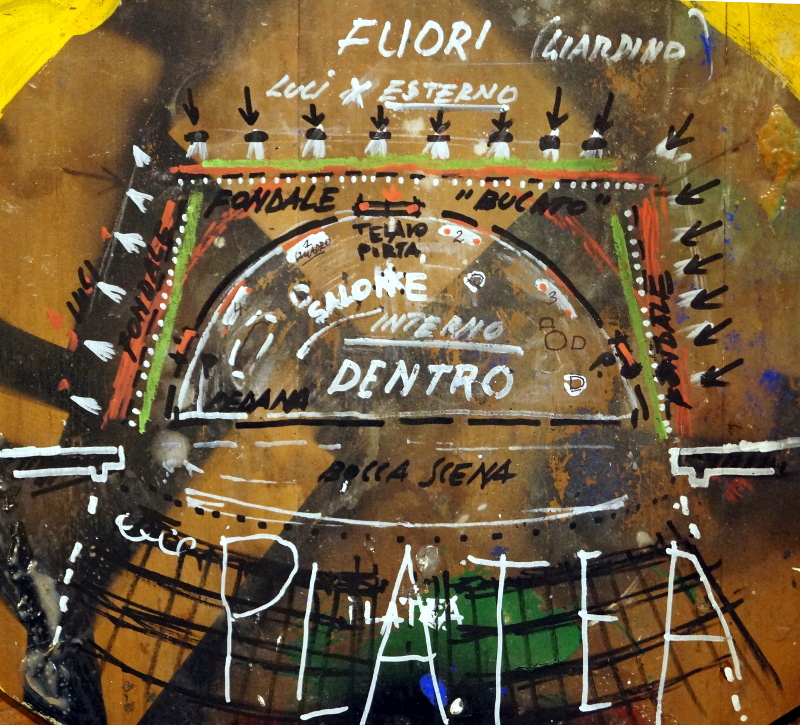 FUORI (GIARDINO)
LUCI X ESTERNO
FONDALE "BUCATO"
TELAIO
PORTA
1
QUADRO
2
3
4
SALONE
INTERNO
DENTRO
PEDANA
LUCI
FONDALE
FONDALE
BOCCA SCENA
PLATEA
PLATEA